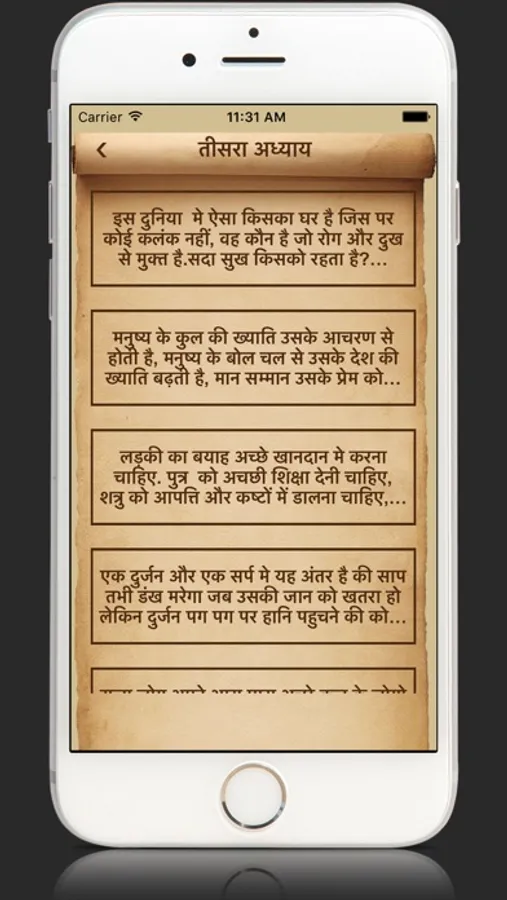 Carrier 11:31 AM
तीसरा अध्याय
इस दुनिया मे ऐसा किसका घर है जिस पर
कोई कलंक नहीं, वह कौन है जो रोग और दुख
से मुक्त है.सदा सुख किसको रहता है?...
मनुष्य के कुल की ख्याति उसके आचरण से
होती है, मनुष्य के बोल चल से उसके देश की
ख्याति बढ़ती है, मान सम्मान उसके प्रेम को...
लड़की का बयाह अच्छे खानदान मे करना
चाहिए. पुत्र को अचछी शिक्षा देनी चाहिए,
शत्रु को आपत्ति और कष्टों में डालना चाहिए,...
एक दुर्जन और एक सर्प मे यह अंतर है की साप
तभी डंख मरेगा जब उसकी जान को खतरा हो
लेकिन दुर्जन पग पग पर हानि पहुचने की को...